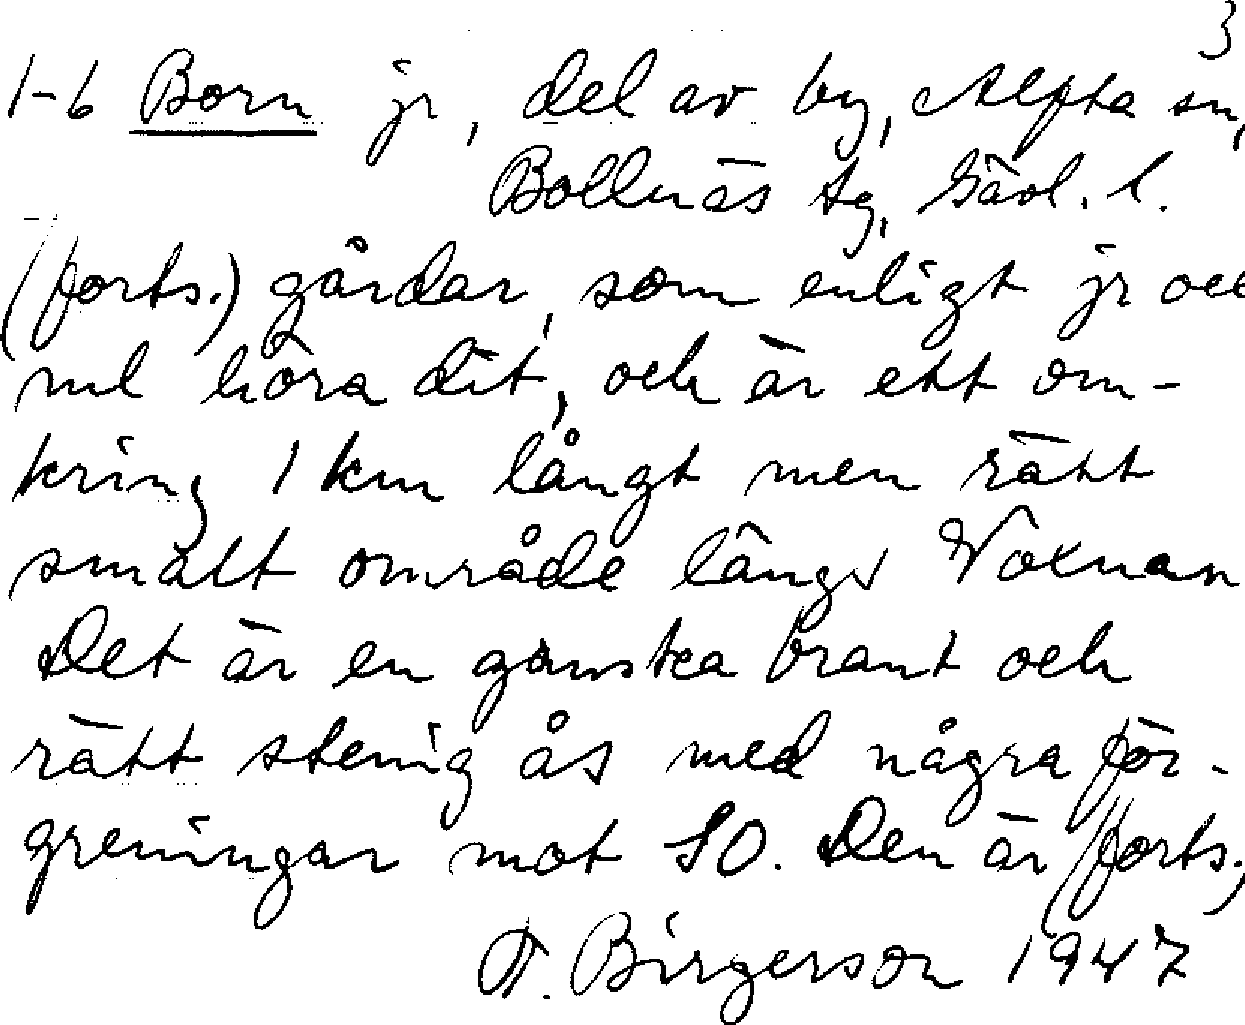 3
1-6 Born jr, del av by, Alfta sn,
Bollnäs tg, Gävl. l.
(forts.) gårdar, som enligt jr och
ml höra dit, och är ett om-
kring 1 km långt men rätt
smalt område längs Voxnan
Det är en ganska brant och
rätt stenig ås med några för-
greningar mot SO. Den är (forts.)
T. Birgerson 1947